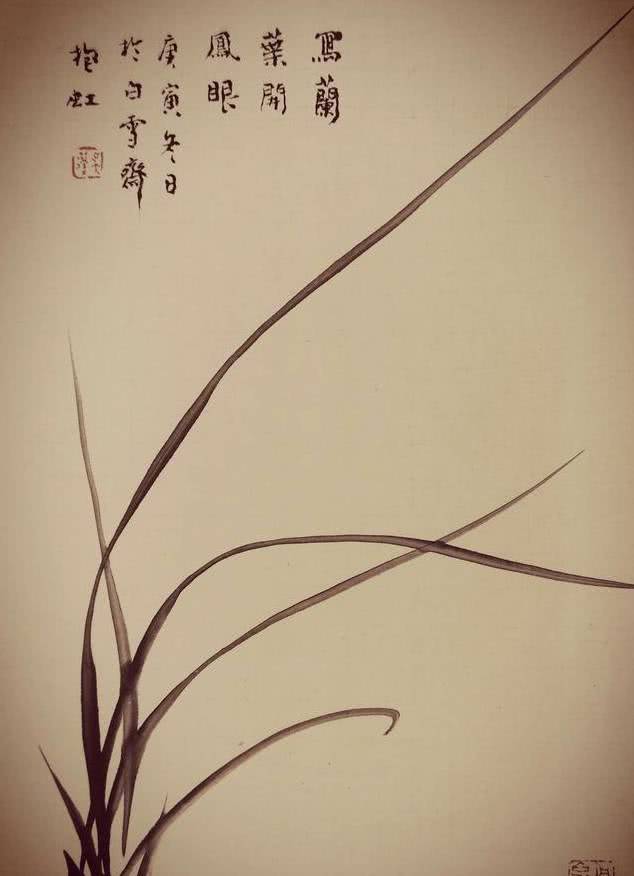 寫蘭
葉開
鳳眼
庚寅冬日
於白雪齋
抱虹